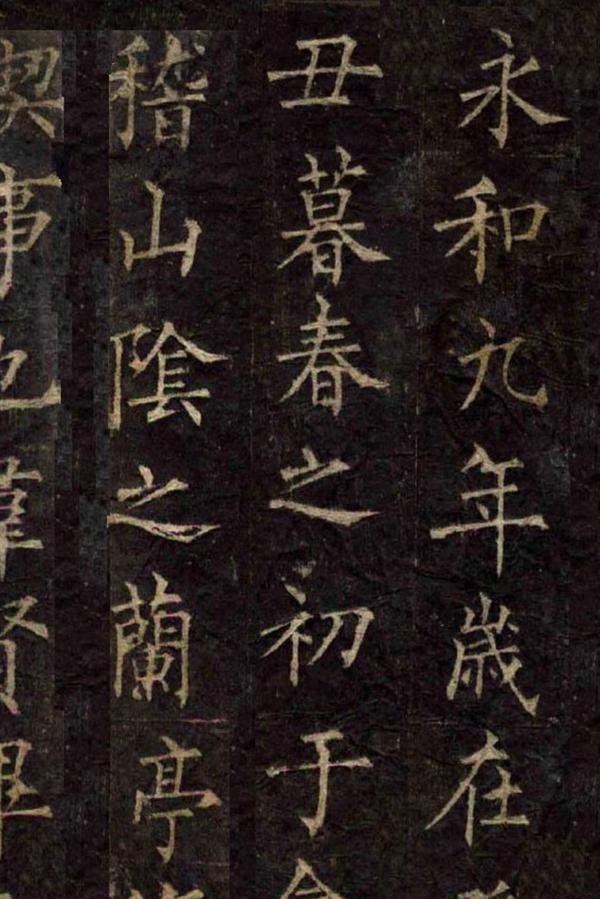 永和九年歲在
丑暮春之初于
稽山陰之蘭亭
禊事也羣賢畢